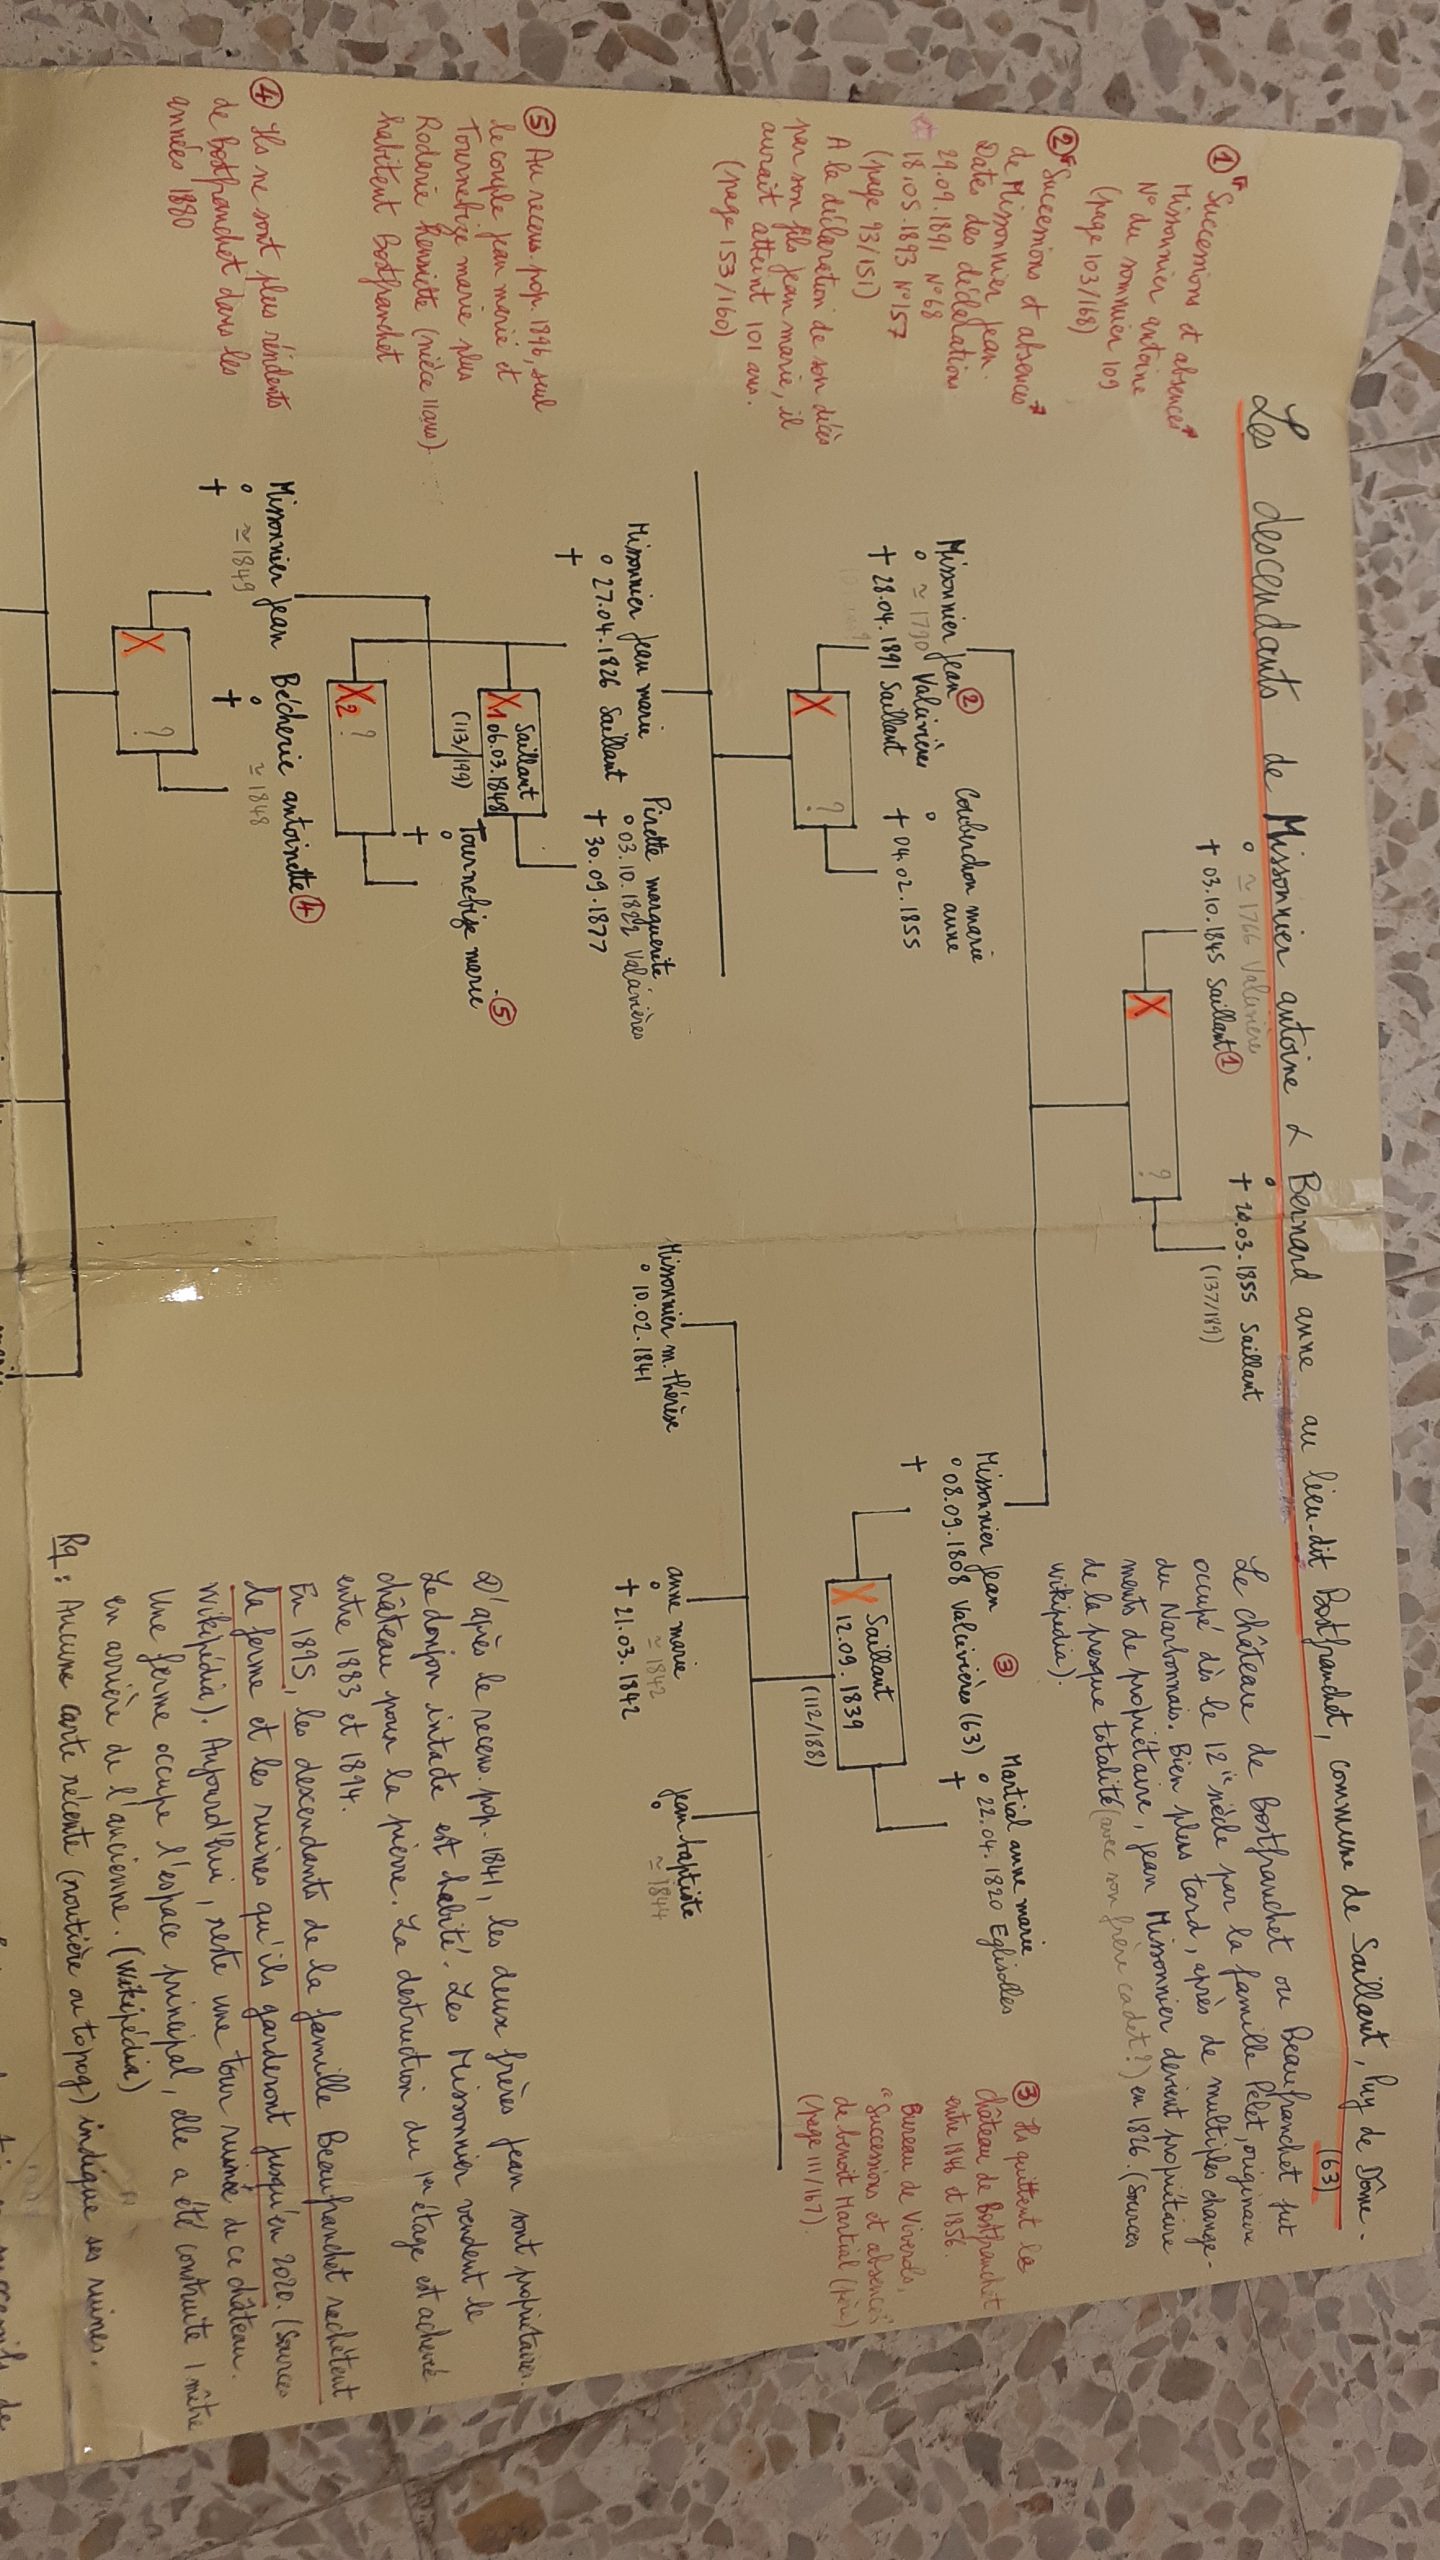 Les descendants de Missonnier antoine & Bernard anne au lieu-dit Bostfranchet, commune de Saillant, Puy de Dôme.
(63)
° ≃ 1766 Valcivière
+ 03.10.1845 Saillant ①
°
+ 20.03.1855 Saillant
(137/189)
X ?
① "Successions et absences"
Missonnier antoine
N° du sommier 109
(page 103/168)
② "Successions et absences"
de Missonnier Jean.
Dates des déclarations
29.09.1891 N°68
18.05.1893 N°157
(page 93/151)
A la déclaration de son décès
par son fils Jean marie, il
aurait atteint 101 ans.
(page 153/160)
Le château de Bostfranchet ou Beaufranchet fut
occupé dès le 12ie siècle par la famille Pelet, originaire
du Narbonnais. Bien plus tard, après de multiples change-
ments de propriétaire, Jean Missonnier devient propriétaire
de la presque totalité (avec son frère cadet?) en 1826. (Sources
Wikipedia).
Missonnier Jean ②
° ≃ 1790 Valcivières
+ 28.04.1891 Saillant
Couberchon marie
anne
°
+ 04.02.1855
X ?
Missonnier Jean ③
° 08.09.1808 Valcivières (63)
+
Martial anne marie
° 22.04.1820 Eglisolles
+
Saillant
X 12.09.1839
(112/188)
③ Ils quittent le
château de Bostfranchet
entre 1846 et 1856.
Bureau de Viverols,
"Successions et absences"
de benoit Martial (père)
(page 111/167).
Missonnier Jean marie
° 27.04.1826 Saillant
+
Pirette marguerite
° 03.10.1822 Valcivières
+ 30.09.1877
Saillant
X1 06.03.1848
(113/199)
Tournebize marie ⑤
°
+
X2 ?
Missonnier m. thérèse
° 10.02.1841
anne marie
° ≃ 1842
+ 21.03.1842
Jean baptiste
° ≃ 1844
⑤ Au recens. pop. 1896, seul
le couple Jean marie et
Tournebize marie plus
Roderie Henriette (nièce 11 ans)
habitent Bostfranchet
④ Ils ne sont plus résidents
de Bostfranchet dans les
années 1880
Missonnier Jean
° ≃ 1849
+
Bécherie antoinette ④
° ≃ 1848
+
X ?
D'après le recens. pop. 1841, les deux frères Jean sont propriétaires.
Le donjon intacte est habité. Les Missonnier vendent le
château pour la pierre. La destruction du 1er étage est achevée
entre 1883 et 1894.
En 1895, les descendants de la famille Beaufranchet rachètent
la ferme et les ruines qu'ils garderont jusqu'en 2020. (Sources
Wikipédia). Aujourd'hui, reste une tour ruinée de ce château.
Une ferme occupe l'espace principal, elle a été construite 1 mètre
en arrière de l'ancienne. (Wikipédia)
Rq : Aucune carte récente (routière ou topog) indique ses ruines.